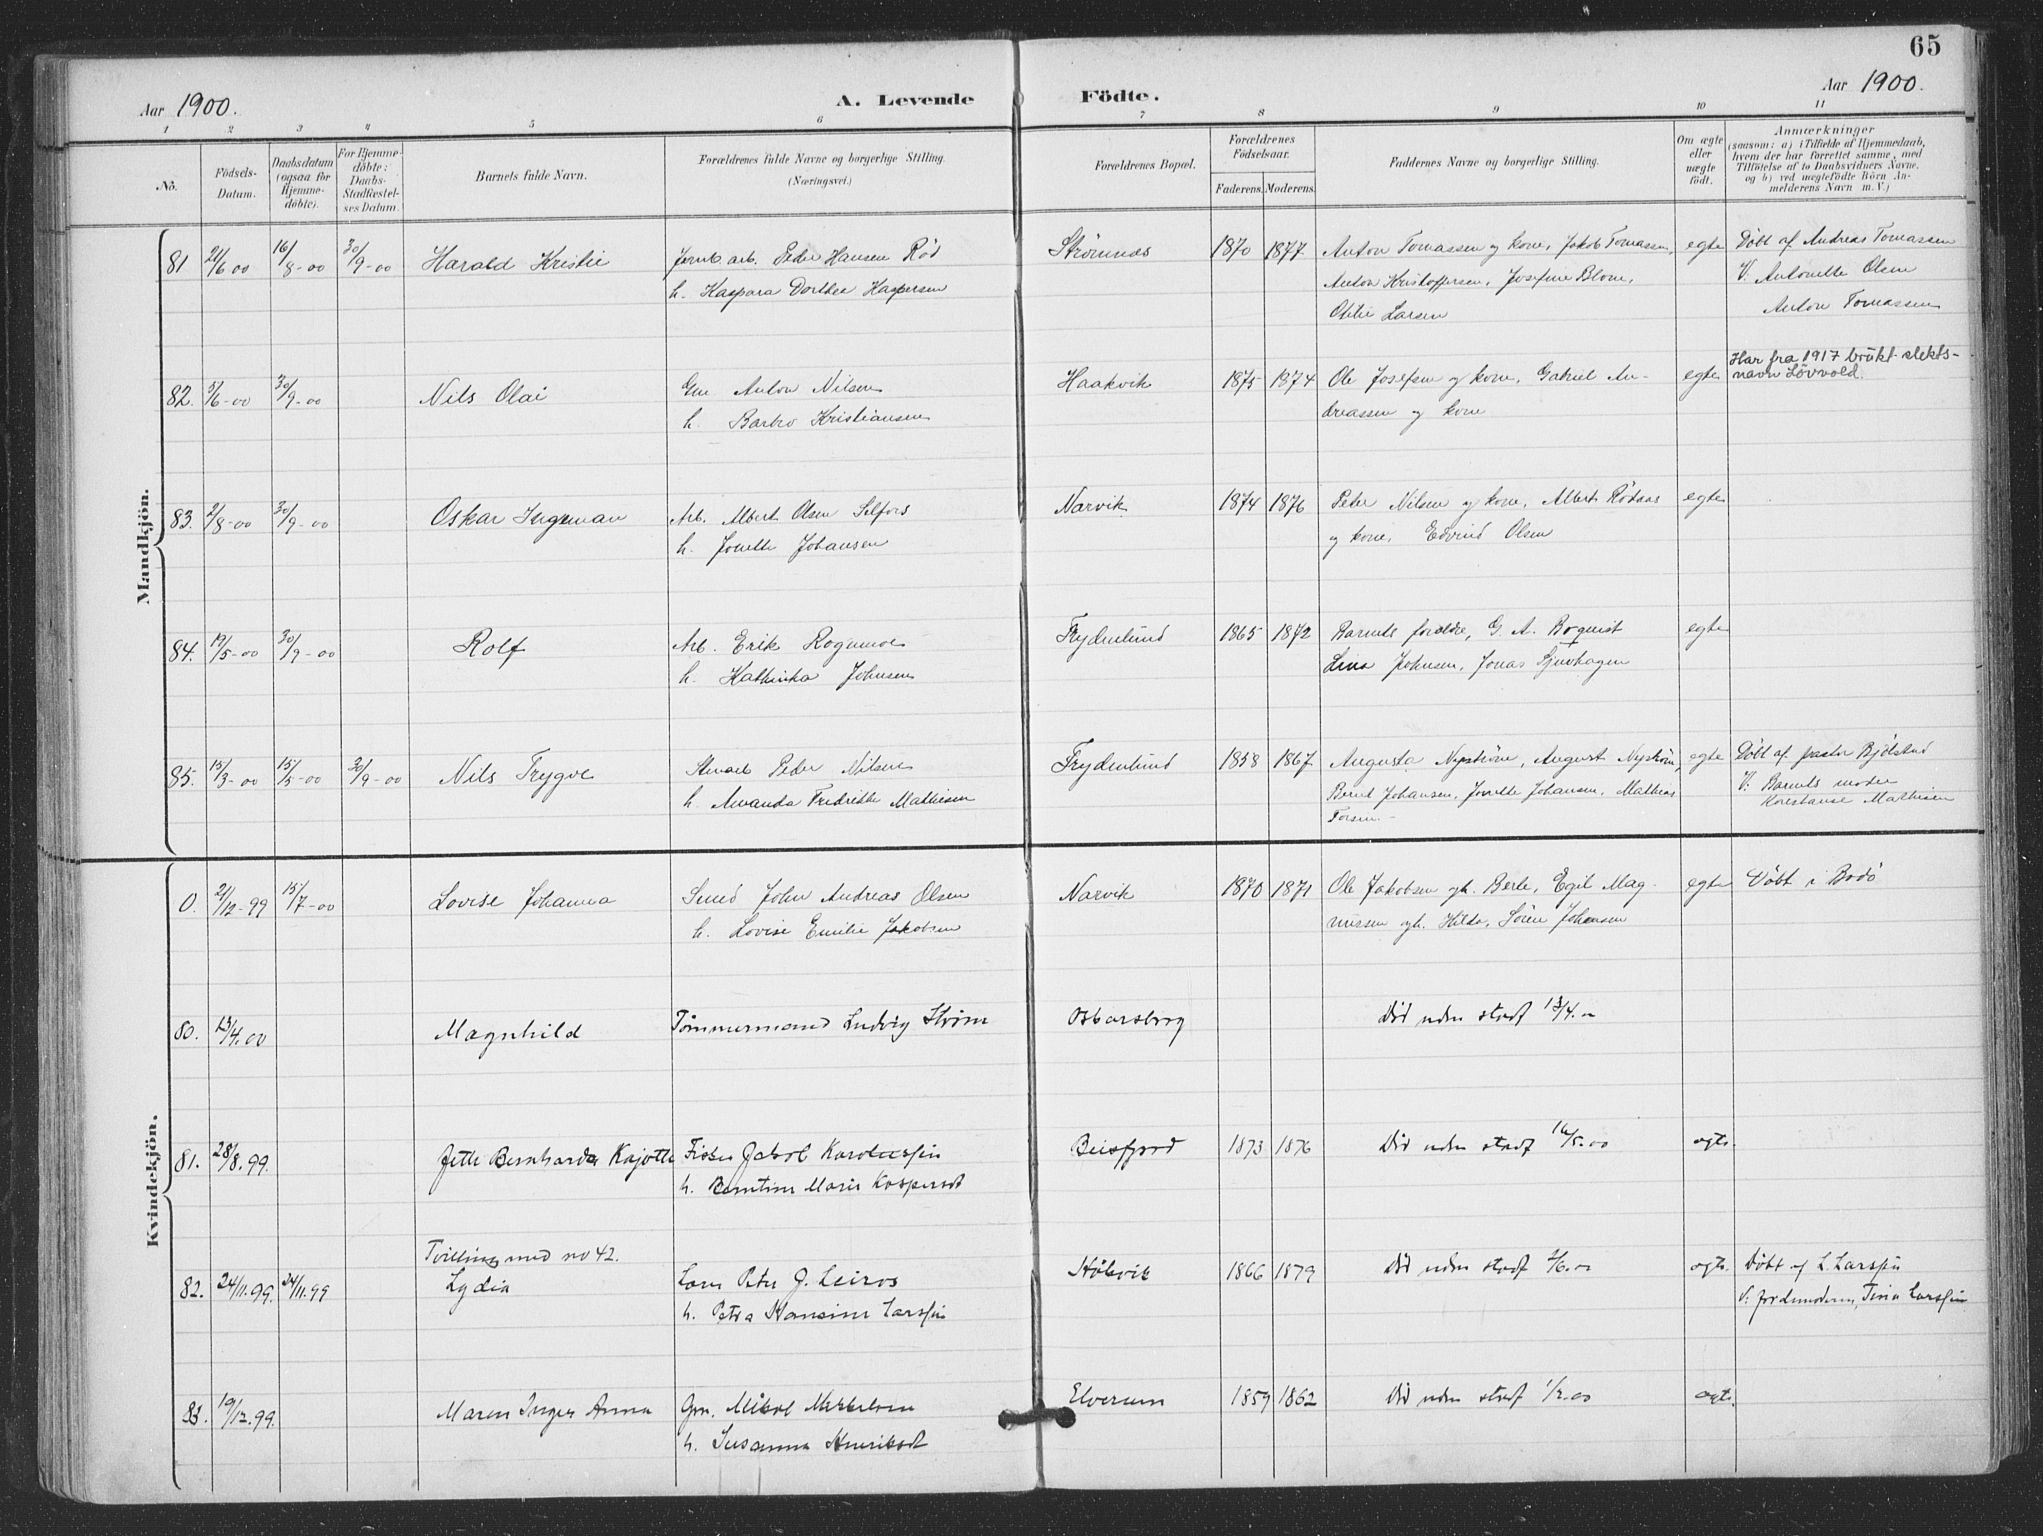 65
Aar 1900. A. Levende Födte. Aar 1900.
1 2 3 4 5 6 7 8 9 10 11
No.
Födsels-
Datum.
Daabsdatum
(ogsaa for
Hjemme-
döbte).
For Hjemme-
döbte:
Daabs-
Stadfæstel-
ses Datum.
Barnets fulde Navn.
Forældrenes fulde Navne og borgerlige Stilling.
(Næringsvei.)
Forældrenes Bopæl.
Forældrenes
Födselsaar.
Faderens. Moderens.
Faddernes Navne og borgerlige Stilling.
Om ægte
eller
uægte
födt.
Anmærkninger
(saasom: a) i Tilfælde af Hjemmedaab,
hvem der har forrettet samme, med
Tilföielse af to Daabsvidners Navne.
og b) ved uægtefödte Börn An-
melderens Navn m. V.)
Mandkjön.
81 21/6 00 16/8-00 30/9-00 Harald Kristie Jernb. arb. Peder Hansen Röd Strömnes 1870 1877 Anton Tomassen og kone, Jakob Tomassen, egte Döbt af Andreas Tomassen
h. Kaspara Dorthea Haspersen Anton Kristoffersen, Josefine Blom, V: Antonette Olsen
Otilie Larsen Anton Tomassen
82. 5/6-00 30/9-00 Nils Olai Gm. Anton Nilsen Haakvik 1875 1874 Ole Josefsen og kone, Gabriel An- egte Har fra 1917 brukt slekts-
navn Lövvold.
h. Barbro Kristiansen dreassen og kone
83. 2/8-00 30/9-00 Oskar Ingeman Arb. Albert Olsen Selfors Narvik 1874 1876 Peter Nilsen og kone, Albert Rödaas egte
h. Jonette Johansen og kone, Edvind Olsen
84. 19/5-00 30/9-00 Rolf Arb. Erik Rogumoe Frydenlund 1865 1872 Barnets foreldre, G. A. Boquist egte
h. Kathinka Johnsen Lina Johnsen, Jonas Sjuvhagen
85. 15/3-00 15/5-00 30/9-00 Nils Trygve Peder Nilsen Frydenlund 1858 1867 Augusta Nyström, August Nyström, egte Döbt af pastor Bjölstad
h. Amanda Fredrikke Mathisen Bernt Johansen, Jonette Johansen, Mathias V: Barnets moder
Torsen.- Konstanse Mathisen
Kvindekjön.
0. 21/12-99 15/7-00 Lovise Johanna Smed John Andreas Olsen Narvik 1870 1871 Ole Jakobsen gh. Berle, Egil Mag- egte Döbt i Bodö
h. Lovise Emilie Jakobsen nussen gh. Hilda, Sören Johansen
80. 13/4.00 Magnhild Tömmermand Ludvig Ström Oskarsborg Död uden stadf 13/4.00
81. 28/8.99. Jette Bernharda Kajotte Fisker Jakob Karoliussen Beisfjord 1873 1876 Död uden stadf 16/5.00 egte.
h. Berntine Marie Kaspersdt
Tvilling med no 42.
82. 24/11.99. 24/11.99 Lydia Lars Peter J. Leiros Håkvik 1866 1879 Död uden stadf 7/6.00 egte. Döbt af L. Larssen
h. Petra Hansine Larssen V: jordemoderen, Tina Larssen
83. 19/12.99. Maren Inger Anna Gm. Mikal Mikkelsen Elvenes 1859 1862 Död uden stadf 1/2.00 egte.
h. Susanna Henriksdt